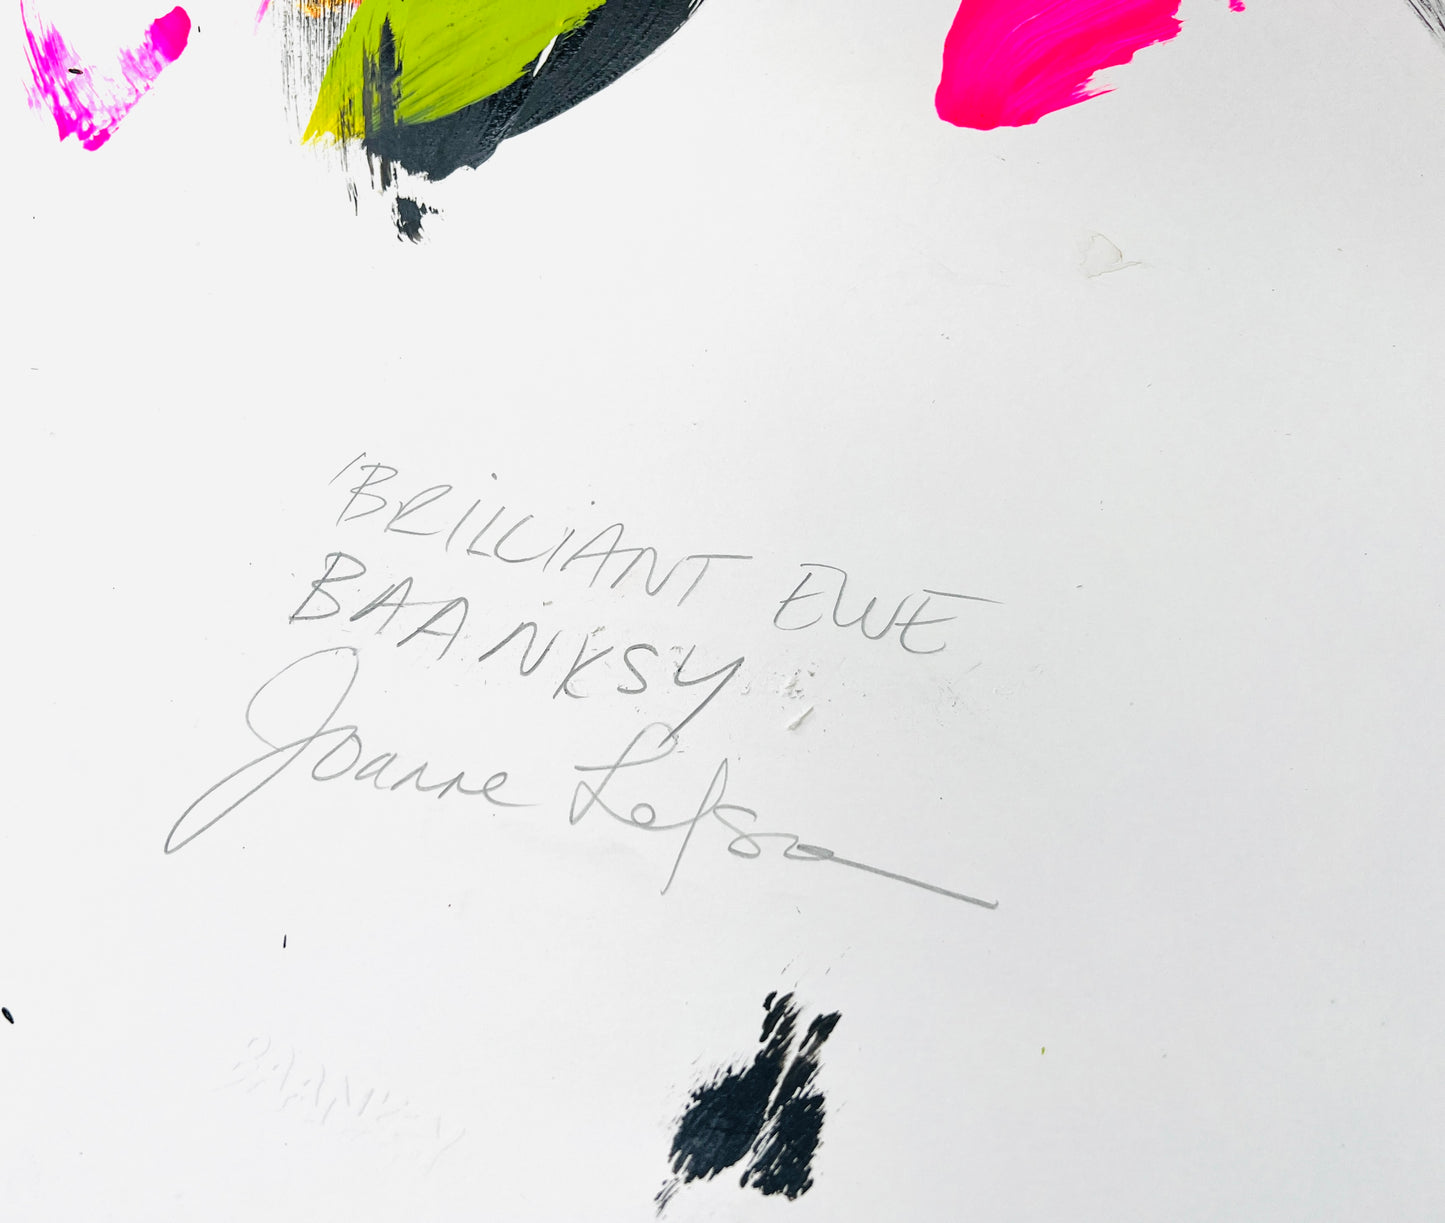 'BRILLIANT EWE
BAANKSY
Joanne Lefson
BAANKSY